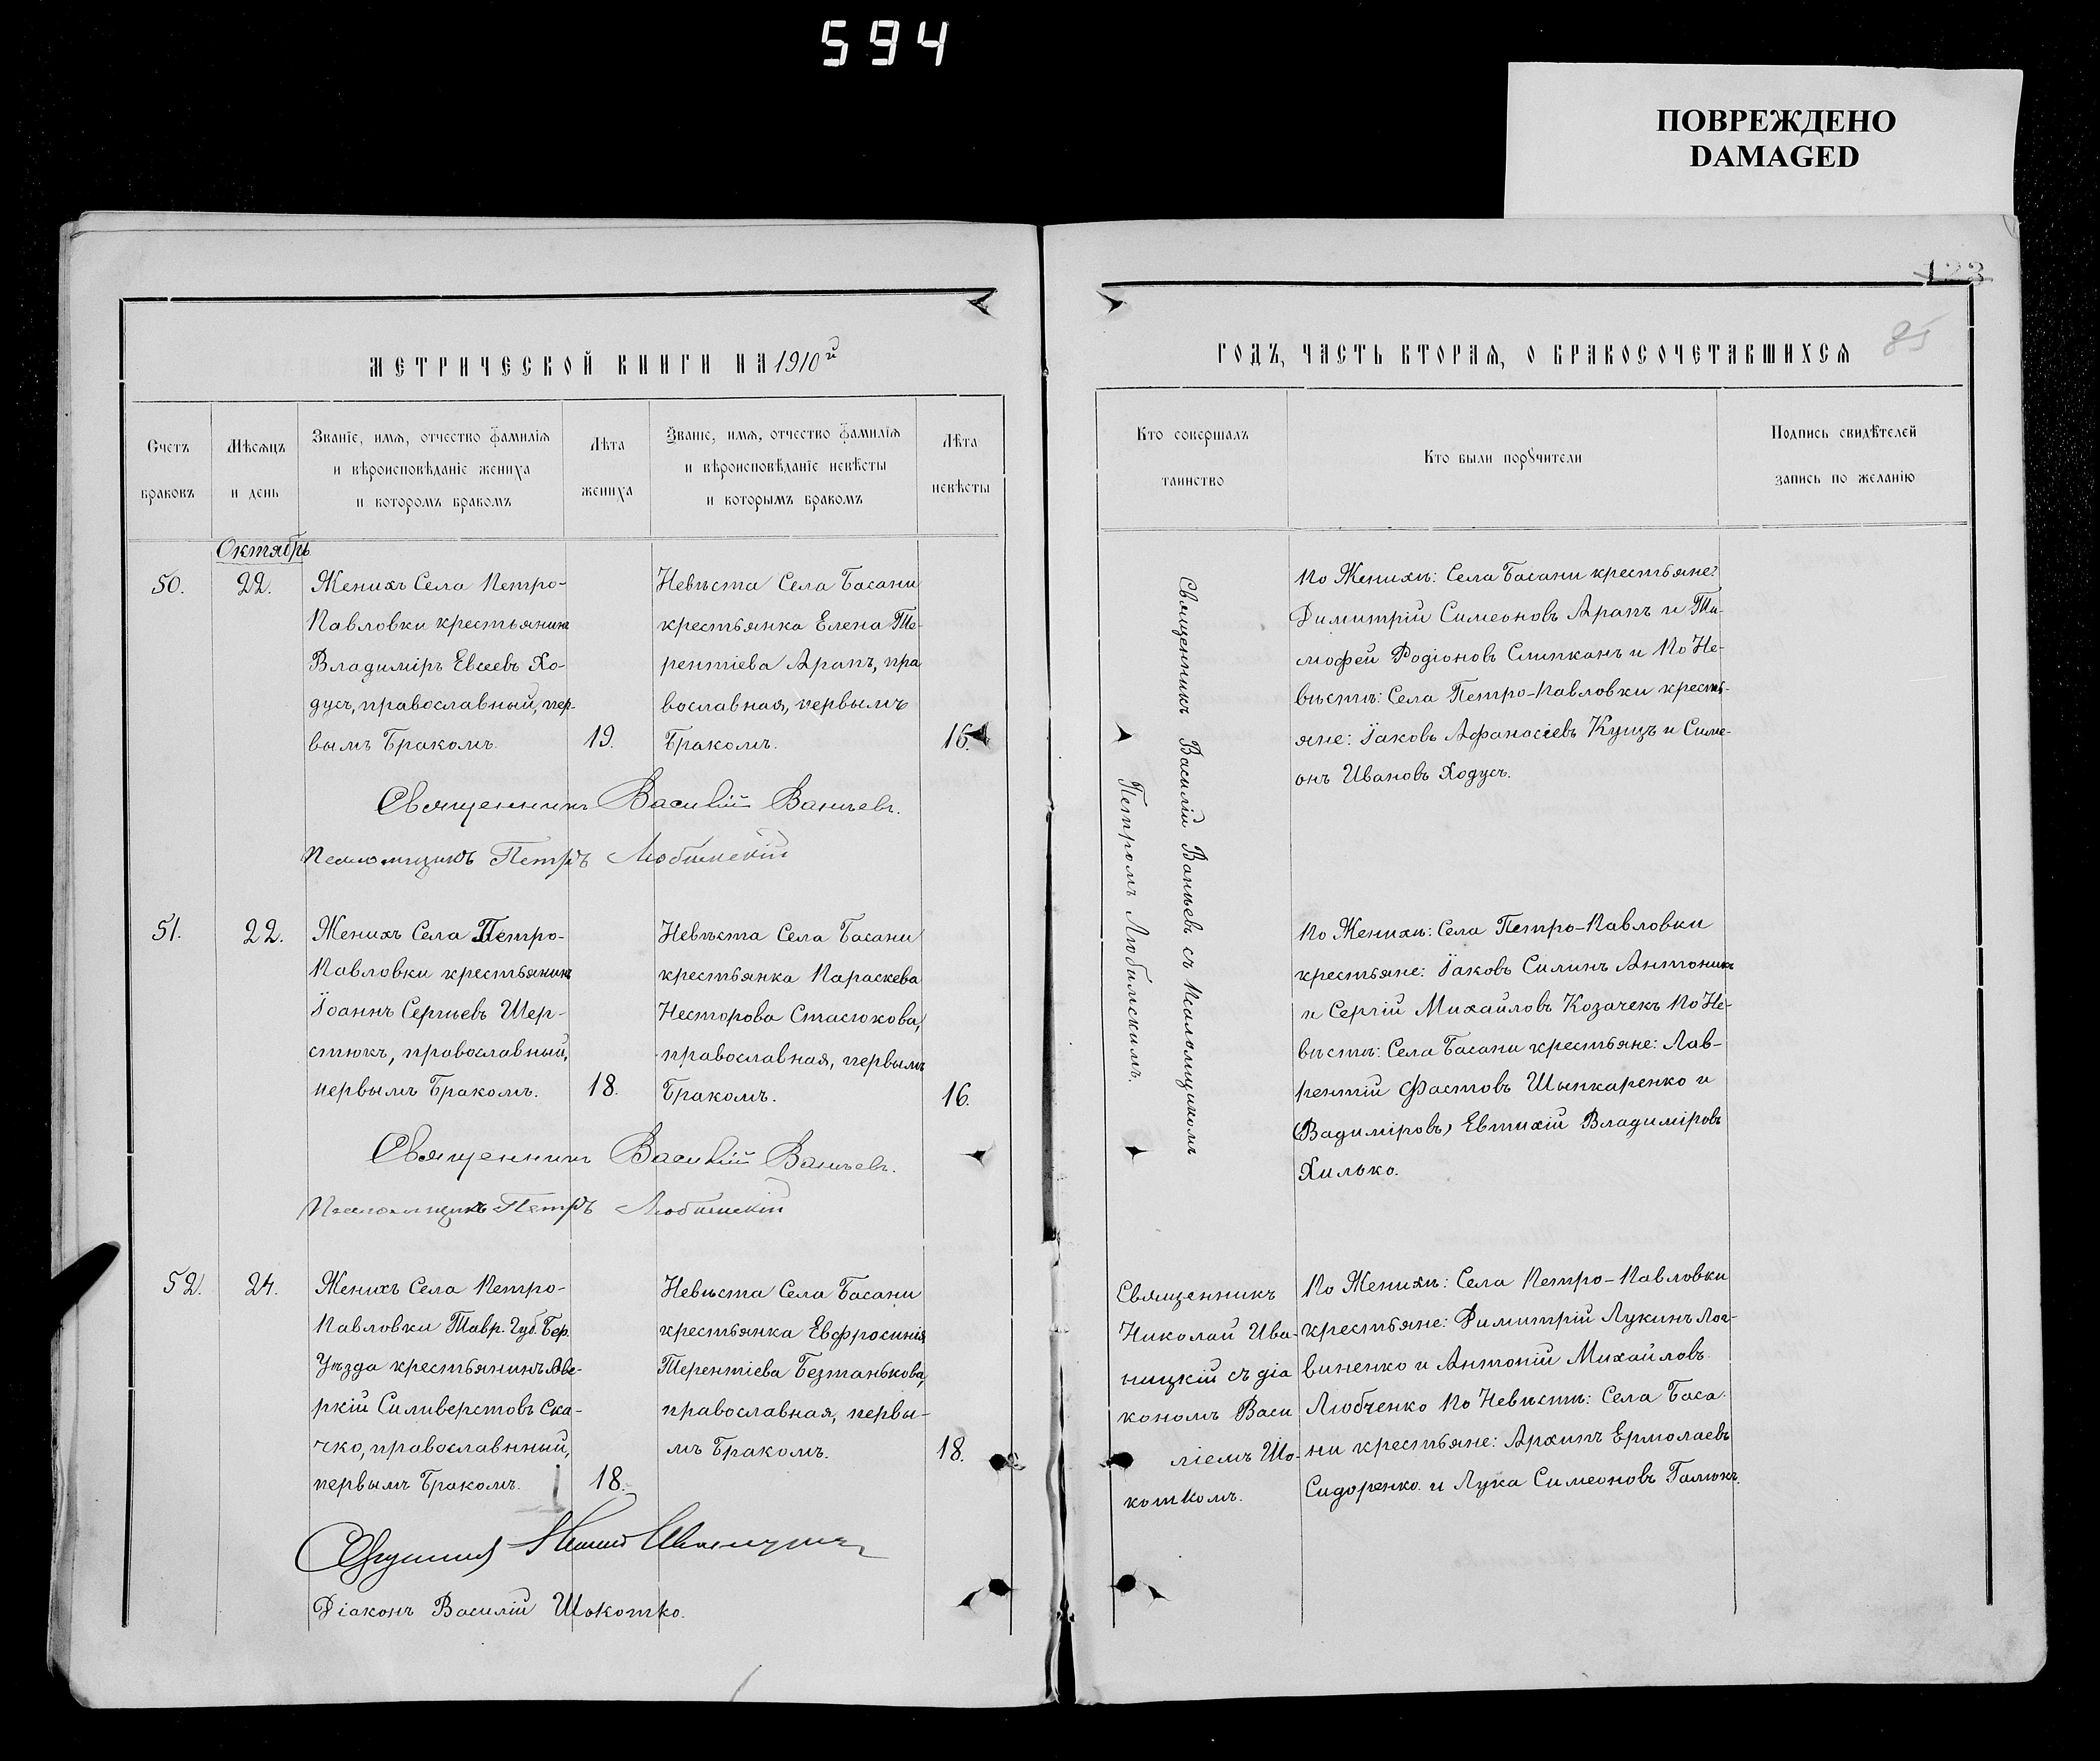 594
ПОВРЕЖДЕНО
DAMAGED
МЕТРИЧЕСКОЙ КНИГИ НА 1910й
Счетъ браковъ
Мѣсяцъ и день
Званіе, имя, отчество фамилія
и вѣроисповѣданіе жениха
и которомъ бракомъ
Лѣта жениха
Званіе, имя, отчество фамилія
и вѣроисповѣданіе невѣсты
и которымъ бракомъ
Лѣта невѣсты
Октябрь
50.
22.
Женихъ Села Петро-
Павловки крестьянинъ
Владиміръ Евсеевъ Хо-
дусъ, православный, пер-
вымъ Бракомъ.
19.
Невѣста Села Басани
крестьянка Елена Те-
рентіева Арапъ, пра
вославная, первымъ
Бракомъ.
16.
Священникъ Василій Ваньевъ.
Псаломщикъ Петръ Любимскій
51.
22.
Женихъ Села Петро-
Павловки крестьянинъ
Іоаннъ Сергѣевъ Шер-
стюкъ, православный,
первымъ Бракомъ.
18.
Невѣста Села Басани
крестьянка Параскева
Несторова Стасюкова,
православная, первымъ
Бракомъ.
16.
Священникъ Василій Ваньевъ.
Псаломщикъ Петръ Любимскій
52.
24.
Женихъ Села Петро-
Павловки Тавр. Губ. Бер.
Уѣзда крестьянинъ Аве-
ркій Силиверстовъ Ска-
чко, православнный,
первымъ Бракомъ.
18.
Невѣста Села Басани
крестьянка Евфросинія
Терентіева Безтанькова,
православная, первы-
мъ Бракомъ.
18.
Діаконъ Василій Шокотко.
123
85
ГОДЪ, ЧАСТЬ ВТОРАЯ, О БРАКОСОЧЕТАВШИХСЯ
Кто совершалъ
таинство
Кто были порꙋчители
Подпись свидѣтелей
запись по желанію
Священникъ Василій Ваньевъ съ Псаломщикомъ
Петромъ Любимскимъ.
По Женихѣ: Села Басани крестьяне:
Димитрій Симеоновъ Арапъ и Ти-
мофей Родіоновъ Слипканъ и По Не-
вѣстѣ: Села Петро-Павловки кресть-
яне: Іаковъ Афанасіевъ Куцъ и Симе-
онъ Ивановъ Ходусъ.
По Женихѣ: Села Петро-Павловки
крестьяне: Іаковъ Силинъ Антоникъ
и Сергій Михайловъ Козачекъ По Не-
вѣстѣ: Села Басани крестьяне: Лав-
рентій Фастовъ Шынкаренко и
(Вадиміровъ) Евтихій Владиміровъ
Хилько.
Священникъ
Николай Ива-
ницкій съ діа
кономъ Васи
ліемъ Шо-
коткомъ.
По Женихѣ: Села Петро-Павловки
крестьяне: Димитрій Лукинъ Лог-
виненко и Антоній Михайловъ
Любченко По Невѣстѣ: Села Баса-
ни крестьяне: Архипъ Ермолаевъ
Сидоренко и Лука Симеоновъ Галюкъ.